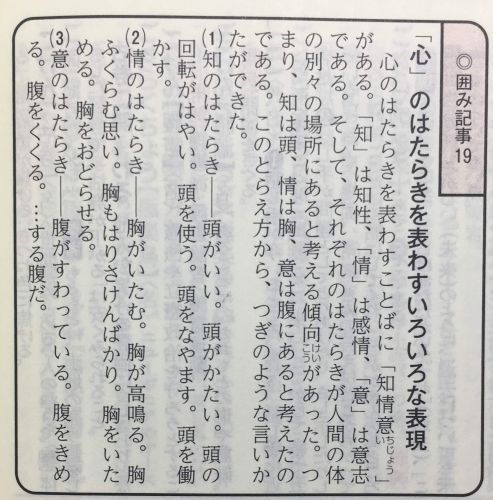 ◎囲み記事19
「心」のはたらきを表わすいろいろな表現
心のはたらきを表わすことばに「知情意」
がある。「知」は知性、「情」は感情、「意」は意志
である。そして、それぞれのはたらきが人間の体
の別々の場所にあると考える傾向があった。つ
まり、知は頭、情は胸、意は腹にあると考えたの
である。このとらえ方から、つぎのような言いか
たができた。
(1)知のはたらき――頭がいい。頭がかたい。頭の
回転がはやい。頭を使う。頭をなやます。頭を働
かす。
(2)情のはたらき――胸がいたむ。胸が高鳴る。胸
ふくらむ思い。胸もはりさけんばかり。胸をいた
める。胸をおどらせる。
(3)意のはたらき――腹がすわっている。腹をきめ
る。腹をくくる。…する腹だ。